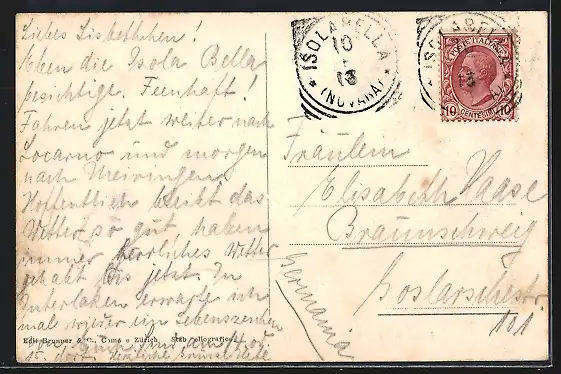 Liebes Lisbethchen!
Eben die Isola Bella
besichtigt. Feenhaft!
Fahren jetzt weiter nach
Locarno und morgen
nach Meiringen.
Hoffentlich bleibt das
Wetter so gut, haben
immer herrliches Wetter
gehabt bis jetzt. In
Interlaken erwarte ich
mal wieder ein Lebenszeichen
von Euch. Sind am 14. od.
15. dort. Herzliche Grüsse
Edit. Brunner & C., Como e Zürich Stab. eliografico
ISOLABELLA
10
13
(NOVARA)
POSTE ITALIANE
10 CENTESIMI 10
Fräulein
Elisabeth Haase
Braunschweig
Goslarschestr.
101
Germania